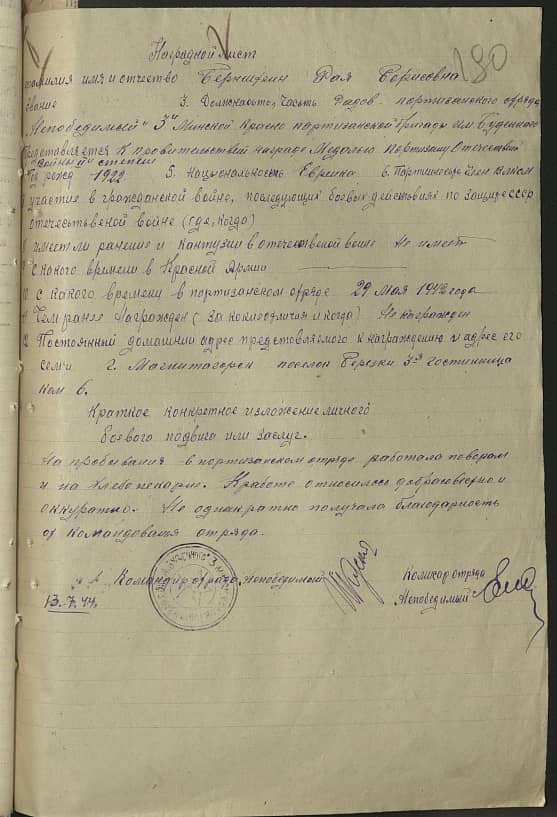 180
Наградной лист
фамилия имя и отчество Бернштейн Рая Борисовна
звание 3. Должность, часть Рядов. партизанского отряда
"Непобедимый" 3й Минской Красно партизанской бригады им Буденного
Представляется к правительствен награде Медалью Партизану Отечествен
войны II степени
год рожд 1922 5. Национальность Еврейка 6. Партийность член ВЛКСМ
участие в гражданской войне, последующих боевых действиях по защите СССР
отечественой войне (где, когда)
8 имеет ли ранение и кантузии в отечествеской войне Не имеет
9 с какого времени в Красной Армии
10 с какого времени в партизанском отряде 29 мая 1942 года
11 Чем ранее награжден (за какие отличия и когда) Не награжден
12 Постоянный домашний адрес предстовляемого к награждению и адрес его
семьи г. Магнитагорск поселок Березки 3я гостинница
ком 6.
Краткое конкретное изложение личного
боевого подвига или заслуг.
На пребывания в партизанском отряде работала поваром
и на хлебопекарне. К работе относилась добрасовестно и
аккуратно. Не однакратно получала благодарность
от командования отряда.
Командир отряда "Непобедимый"
Комисар отряда
"Непобедимый"
13.7.44.